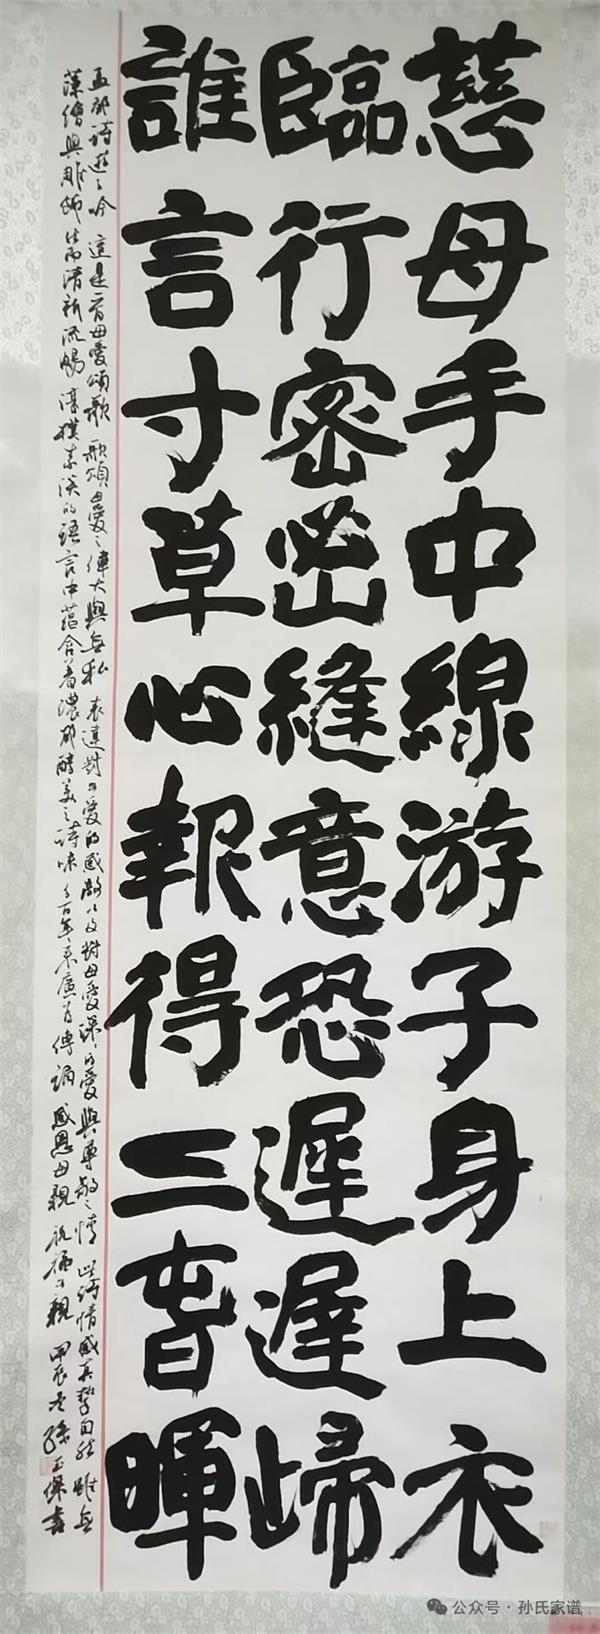 慈母手中線游子身上衣
臨行密密縫意恐遲遲歸
誰言寸草心報得三春暉
孟郊詩游子吟 這是一首母愛頌歌 歌頌母愛之偉大與無私 表達對母愛的感激以及對母愛深深的愛與尊敬之情 此詩情感真摯自然 雖無
藻繪與雕飾 然而清新流暢 淳樸素淡的語言中蘊含着濃郁醇美之詩味 千百年來廣為傳誦 感恩母親 祝福母親 甲辰 孫玉傑書
公众号·孙氏家谱